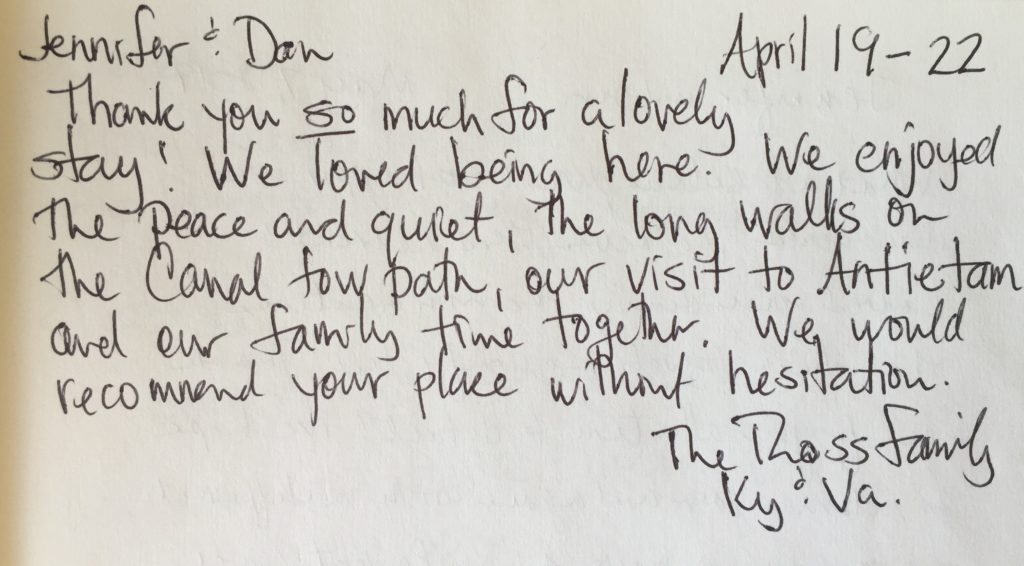 Jennifer & Dan April 19-22
Thank you so much for a lovely
stay! We loved being here. We enjoyed
the peace and quiet, the long walks on
the Canal tow path, our visit to Antietam
and our family time together. We would
recommend your place without hesitation.
The Ross family
Ky & Va.